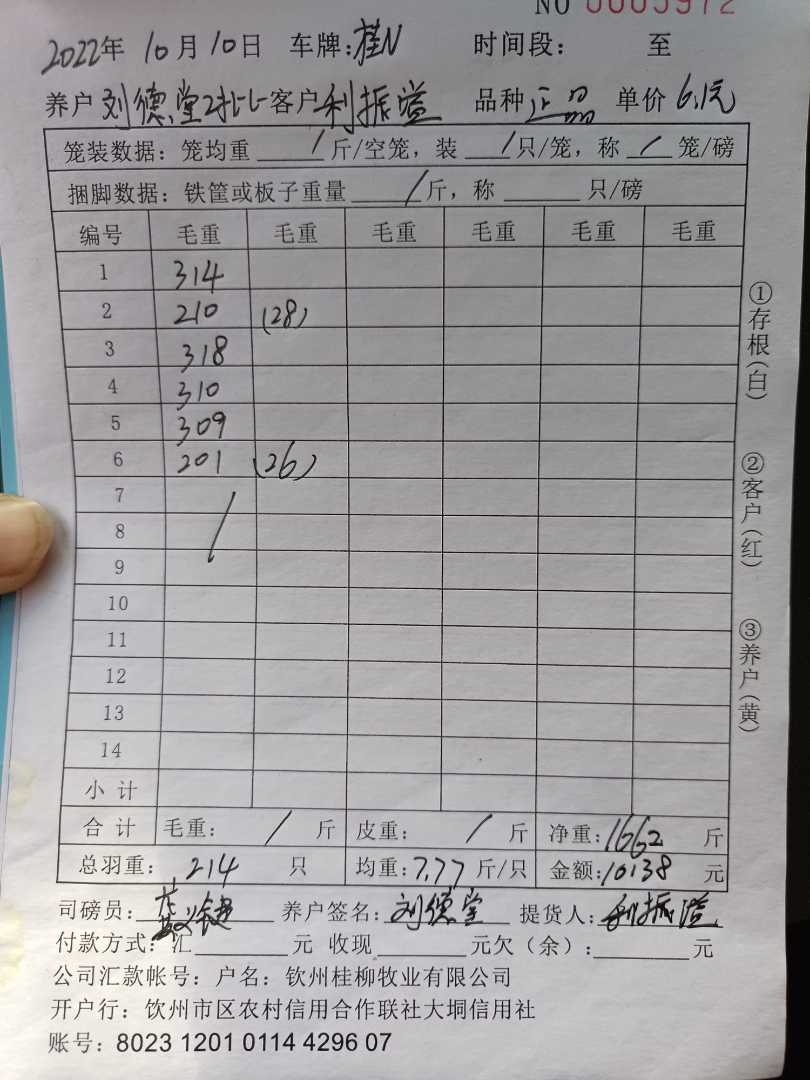 NO 0005972
2022年 10月 10日 车牌:桂N 时间段: 至
养户 刘德堂2批 客户 利振溢 品种 正品 单价 6.1元
笼装数据: 笼均重 / 斤/空笼, 装 / 只/笼, 称 / 笼/磅
捆脚数据: 铁筐或板子重量 / 斤, 称 只/磅
编号 毛重 毛重 毛重 毛重 毛重 毛重
1 314
2 210 (28)
3 318
4 310
5 309
6 201 (26)
7
8
9
10
11
12
13
14
小计
合计 毛重: / 斤 皮重: / 斤 净重: 1662 斤
总羽重: 214 只 均重: 7.77 斤/只 金额: 10138 元
司磅员: 养户签名: 刘德堂 提货人: 利振溢
付款方式: 汇 元 收现 元 欠(余): 元
公司汇款帐号: 户名: 钦州桂柳牧业有限公司
开户行: 饮州市区农村信用合作联社大垌信用社
账号: 8023 1201 0114 4296 07
①存根(白)
②客户(红)
③养户(黄)